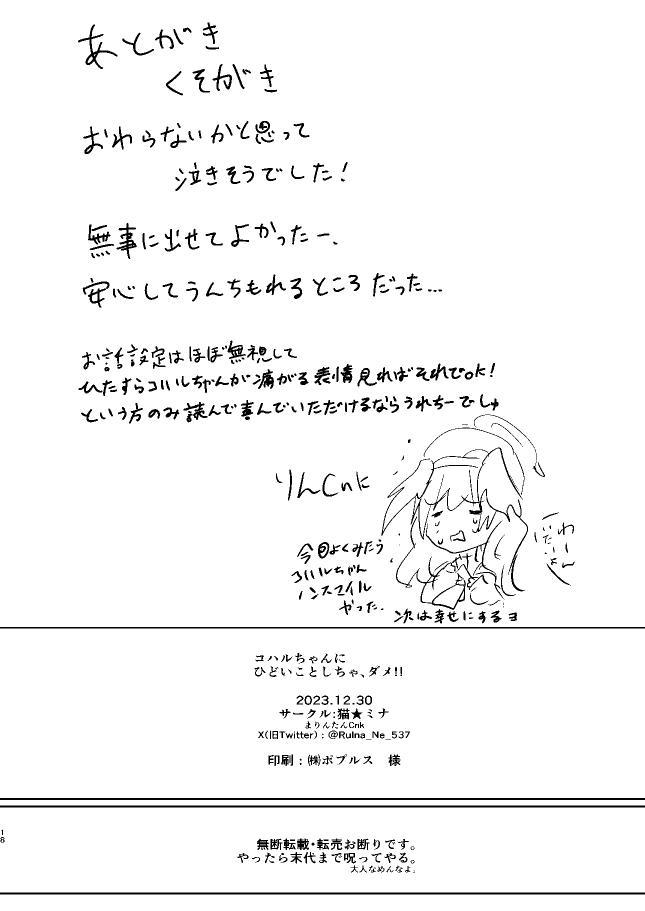 あとがき
くそがき
おわらないかと思って
泣きそうでした!
無事に出せてよかったー、
安心してうんちもれるところだった…
お話設定はほぼ無視して
ひたすらコハルちゃんが痛がる表情見ればそれでok!
という方のみ読んで喜んでいただけるならうれちーでしゅ
りんCnに
わーん
いたいよん
今回よくみたら
コハルちゃん
ノンスマイル
やった.
次は幸せにするヨ
コハルちゃんに
ひどいことしちゃ、ダメ!!
2023.12.30
サークル:猫★ミナ
まりんたんCnk
X(旧Twitter):@RuIna_Ne_537
印刷:㈱ポプルス 様
18
無断転載・転売お断りです。
やったら末代まで呪ってやる。
大人なめんなよ」